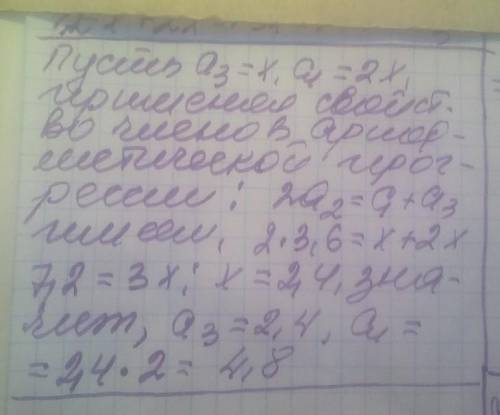 Пусть a₃ = x, a₁ = 2x,
применяя свойст-
во членов арифме-
тической прог-
рессии: 2a₂ = a₁ + a₃
имеем, 2·3,6 = x + 2x
7,2 = 3x; x = 2,4, зна-
чит, a₃ = 2,4, a₁ =
= 2,4 · 2 = 4,8